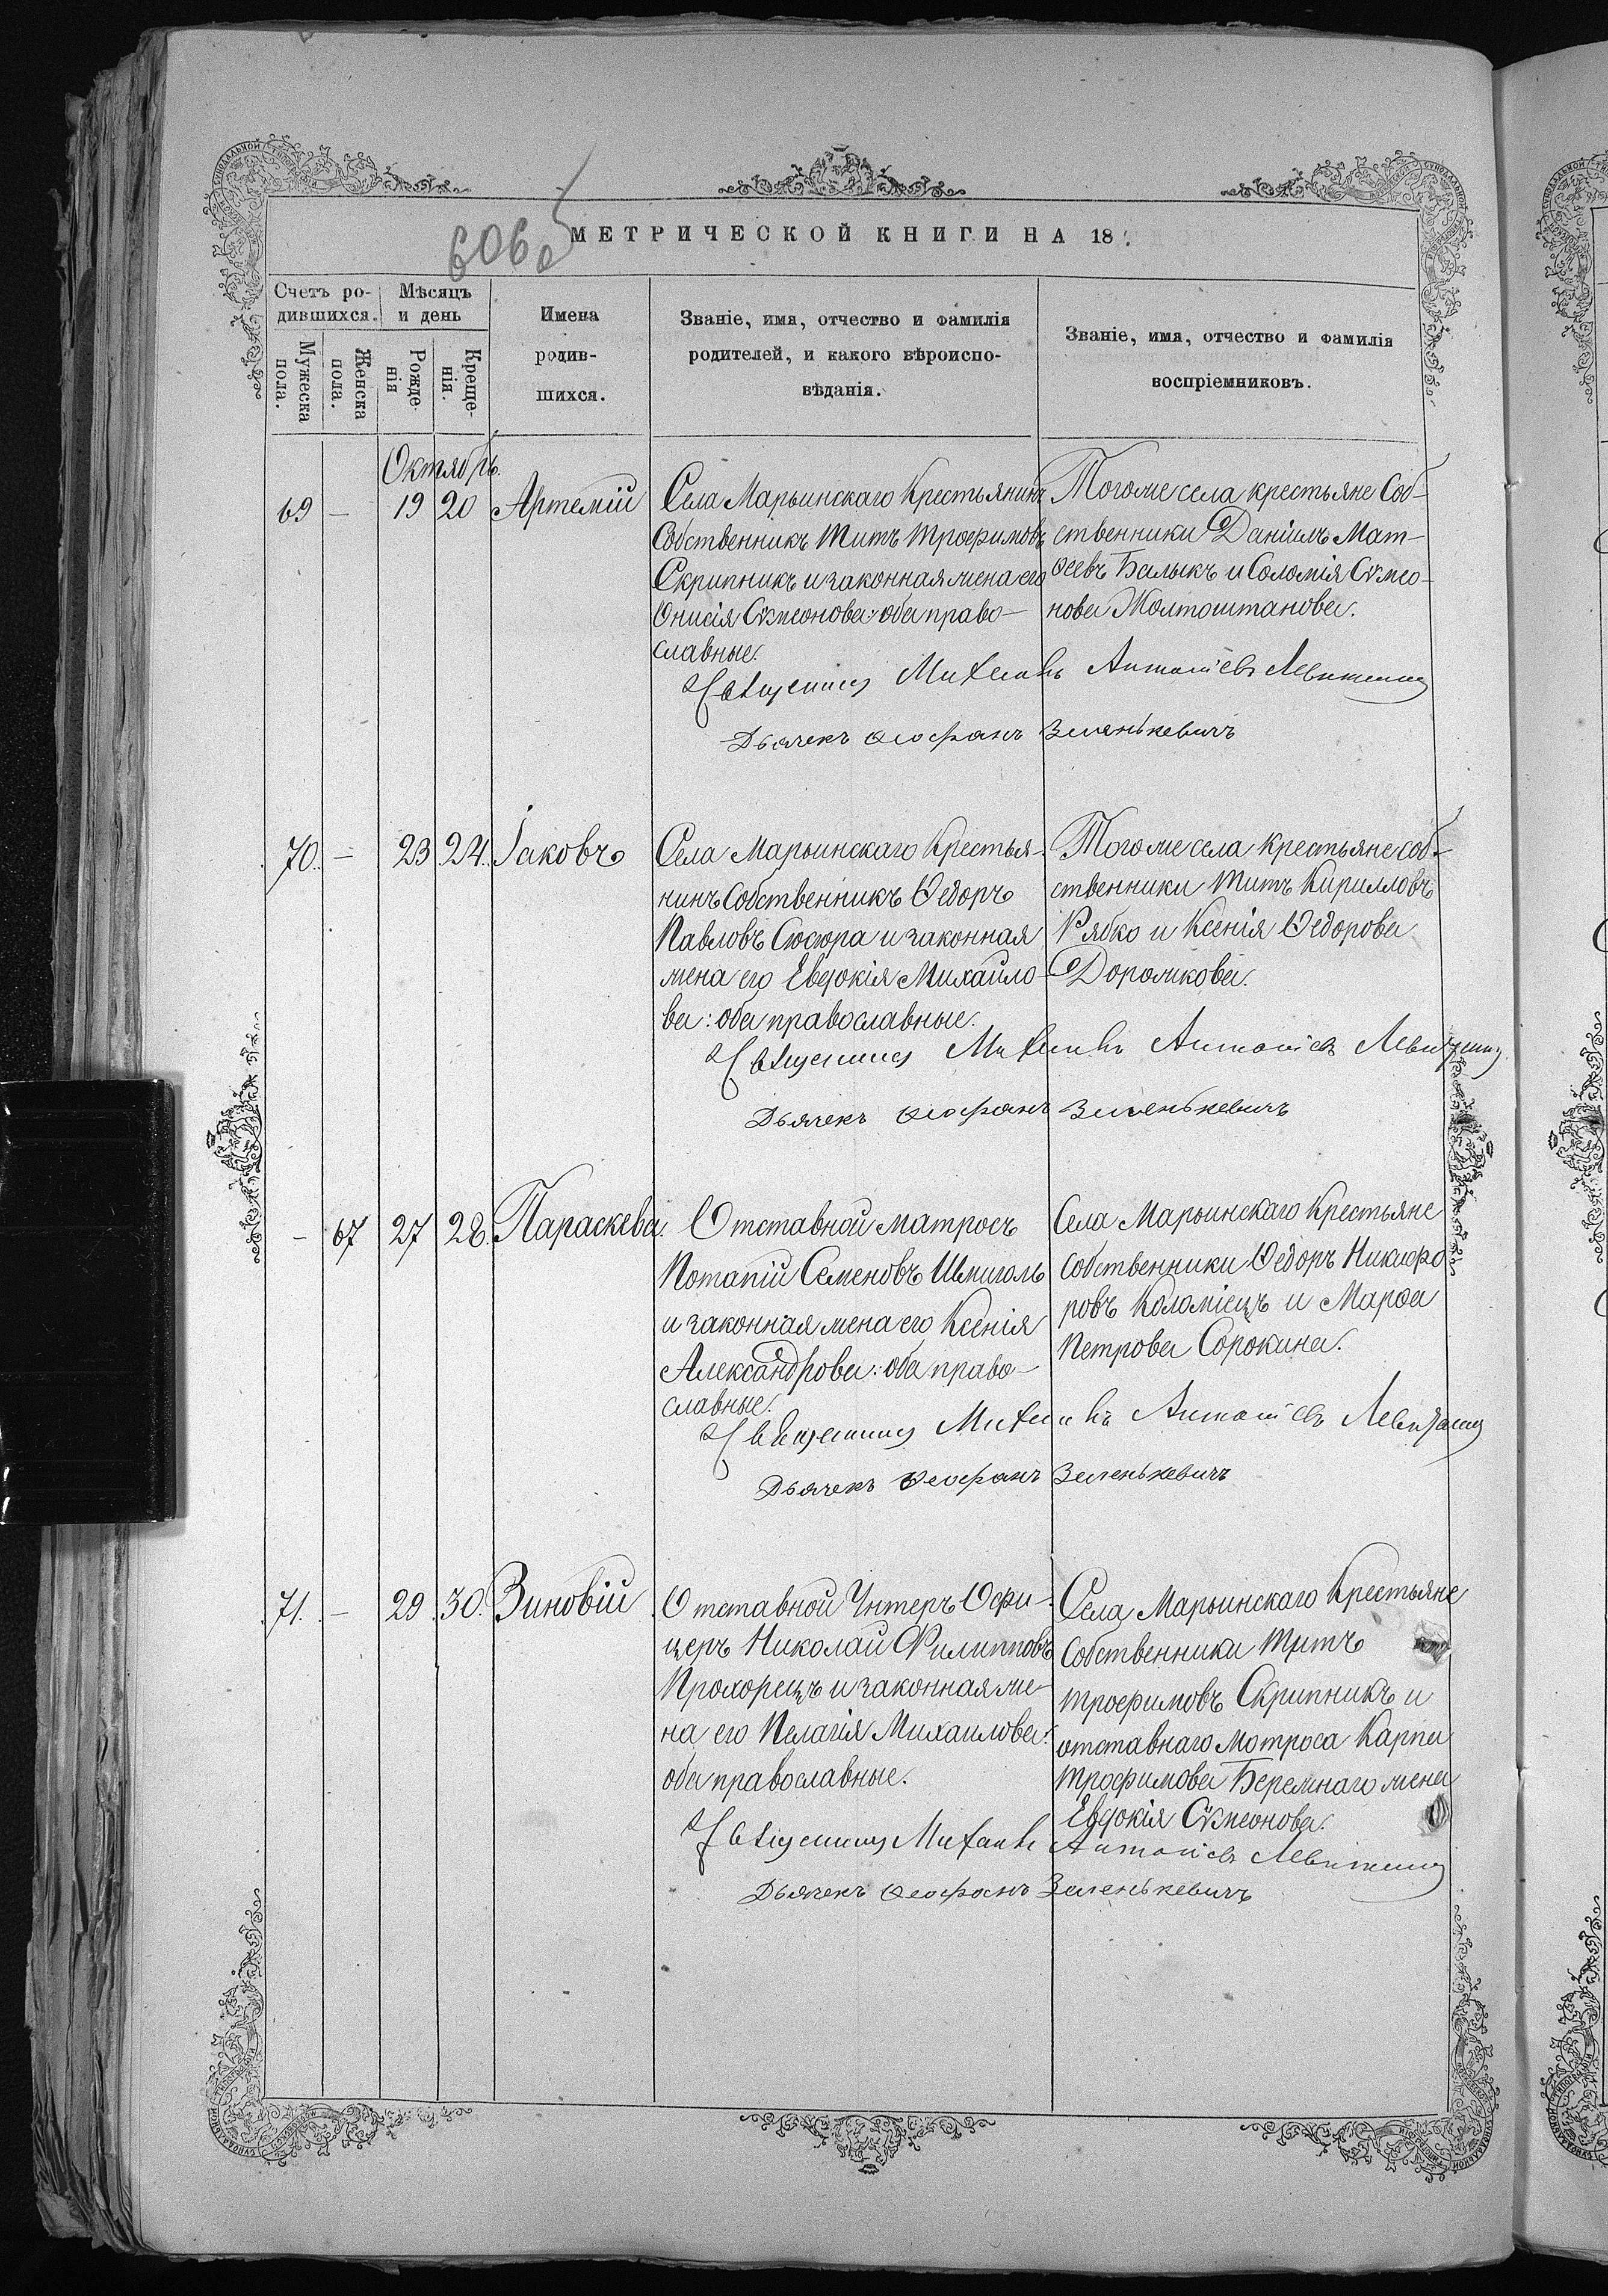 606 об
МЕТРИЧЕСКОЙ КНИГИ НА 18
Счетъ ро-
дившихся.
Мужеска
пола.
Женска
пола.
Мѣсяцъ
и день
Рожде-
нія
Креще-
нія.
Имена
родив-
шихся.
Званіе, имя, отчество и фамилія
родителей, и какого вѣроиспо-
вѣданія.
Званіе, имя, отчество и фамилія
воспріемниковъ.
Октябрь.
69 – 19 20 Артемій
Села Марьинскаго Крестьянинъ
Собственникъ Титъ Трофимовъ
Скрипникъ и законная жена его
Онисія Сѵмеонова: оба право-
славные.
Тогоже села крестьяне Соб-
ственники Даніилъ Мат-
ѳеевъ Балыкъ и Соломія Сѵмео-
нова Жолтоштанова.
Священникъ Михаилъ Антоніевъ
Дьячекъ Ѳеофанъ Зеленькевичъ
70. – 23 24. Іаковъ
Села Марьинскаго Крестья-
нинъ Собственникъ Ѳедоръ
Павловъ Сюсюра и законная
жена его Евдокія Михайло-
ва: оба православные.
Тогоже села крестьяне соб-
ственники Титъ Кирилловъ
Рябко и Ксенія Ѳедорова
Дорожкова.
Священникъ Михаилъ Антоніевъ
Дьячекъ Ѳеофанъ Зеленькевичъ
– 67 27 28. Параскева.
Отставной матросъ
Потапій Семеновъ Шмиголь
и законная жена его Ксенія
Александрова: оба право-
славные.
Села Марьинскаго Крестьяне
Собственники Ѳедоръ Никифо
ровъ Коломіецъ и Марѳа
Петрова Сорокина.
Священникъ Михаилъ Антоніевъ
Дьячекъ Ѳеофанъ Зеленькевичъ
71. – 29 30. Зиновій
Отставной Унтеръ Офи-
церъ Николай Филипповъ
Прохорецъ и законная же-
на его Пелагія Михаилова:
оба православные.
Села Марьинскаго Крестьяне
Собственники Титъ
Трофимовъ Скрипникъ и
отставнаго Мотроса Карпа
Трофимова Беремнаго жена
Евдокія Сѵмеонова.
Священникъ Михаилъ Антоніевъ
Дьячекъ Ѳеофанъ Зеленькевичъ